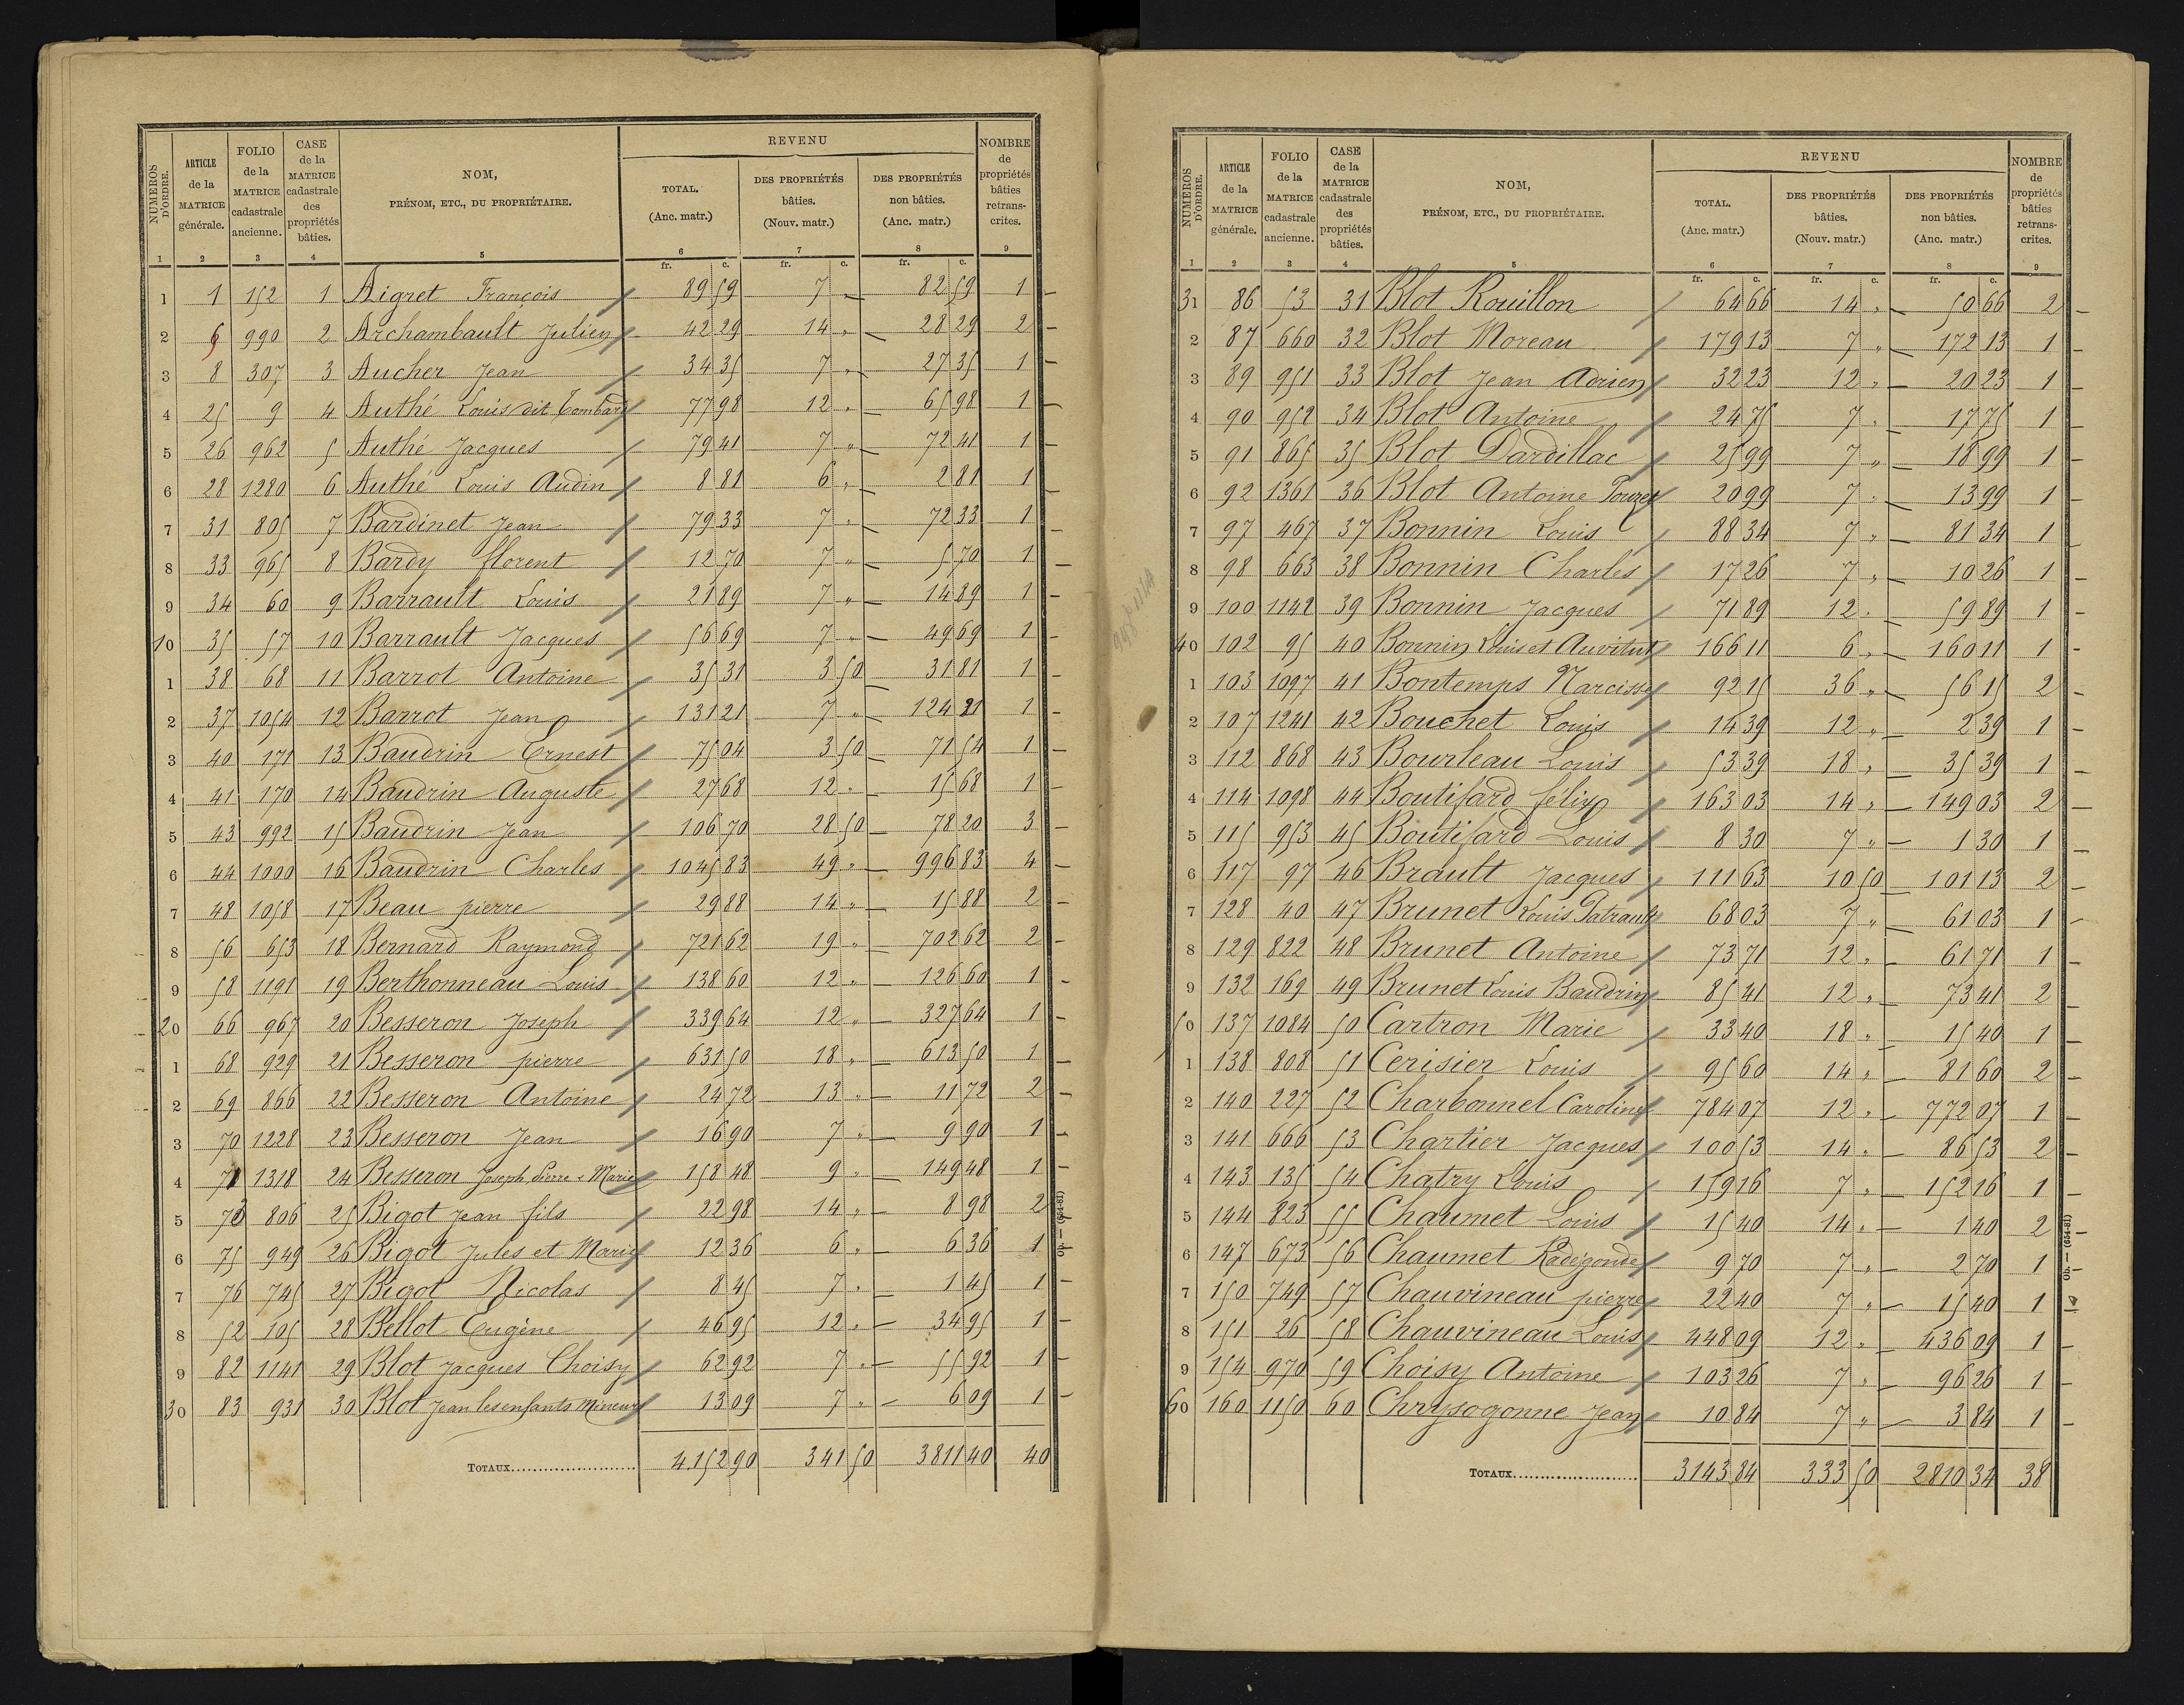 NUMÉROS D'ORDRE. | ARTICLE de la MATRICE générale. | FOLIO de la MATRICE cadastrale ancienne. | CASE de la MATRICE cadastrale des propriétés bâties. | NOM, PRÉNOM, ETC., DU PROPRIÉTAIRE. | REVENU TOTAL. (Anc. matr.) | REVENU DES PROPRIÉTÉS bâties. (Nouv. matr.) | REVENU DES PROPRIÉTÉS non bâties. (Anc. matr.) | NOMBRE de propriétés bâties retranscrites.
1 | 2 | 3 | 4 | 5 | 6 | 7 | 8 | 9
fr. c. | fr. c. | fr. c.
1 | 1 | 152 | 1 | Aigret François | 89 59 | 7 " | 82 59 | 1
2 | 6 | 990 | 2 | Archambault Julien | 42 29 | 14 " | 28 29 | 2
3 | 8 | 307 | 3 | Aucher Jean | 34 35 | 7 " | 27 35 | 1
4 | 25 | 9 | 4 | Authé Louis dit | 77 98 | 12 " | 65 98 | 1
5 | 26 | 962 | 5 | Authé Jacques | 79 41 | 7 " | 72 41 | 1
6 | 28 | 1280 | 6 | Authé Louis Audin | 8 81 | 6 " | 2 81 | 1
7 | 31 | 805 | 7 | Bardinet Jean | 79 33 | 7 " | 72 33 | 1
8 | 33 | 965 | 8 | Bardy florent | 12 70 | 7 " | 5 70 | 1
9 | 34 | 60 | 9 | Barrault Louis | 21 89 | 7 " | 14 89 | 1
10 | 35 | 57 | 10 | Barrault Jacques | 56 69 | 7 " | 49 69 | 1
1 | 38 | 68 | 11 | Barrot Antoine | 35 31 | 3 50 | 31 81 | 1
2 | 37 | 1054 | 12 | Barrot Jean | 131 21 | 7 " | 124 21 | 1
3 | 40 | 171 | 13 | Baudrin Ernest | 75 04 | 3 50 | 71 54 | 1
4 | 41 | 170 | 14 | Baudrin Auguste | 27 68 | 12 " | 15 68 | 1
5 | 43 | 992 | 15 | Baudrin Jean | 106 70 | 28 50 | 78 20 | 3
6 | 44 | 1000 | 16 | Baudrin Charles | 1045 83 | 49 " | 996 83 | 4
7 | 48 | 1058 | 17 | Beau pierre | 29 88 | 14 " | 15 88 | 2
8 | 56 | 653 | 18 | Bernard Raymond | 721 62 | 19 " | 702 62 | 2
9 | 58 | 1191 | 19 | Berthonneau Louis | 138 60 | 12 " | 126 60 | 1
20 | 66 | 967 | 20 | Besseron Joseph | 339 64 | 12 " | 327 64 | 1
1 | 68 | 929 | 21 | Besseron pierre | 631 50 | 18 " | 613 50 | 1
2 | 69 | 866 | 22 | Besseron Antoine | 24 72 | 13 " | 11 72 | 2
3 | 70 | 1228 | 23 | Besseron Jean | 16 90 | 7 " | 9 90 | 1
4 | 71 | 1318 | 24 | Besseron Joseph Pierre & Marie | 158 48 | 9 " | 149 48 | 1
5 | 73 | 806 | 25 | Bigot Jean fils | 22 98 | 14 " | 8 98 | 2
6 | 75 | 949 | 26 | Bigot Jules et Marie | 12 36 | 6 " | 6 36 | 1
7 | 76 | 745 | 27 | Bigot Nicolas | 8 45 | 7 " | 1 45 | 1
8 | 52 | 105 | 28 | Bellot Eugène | 46 95 | 12 " | 34 95 | 1
9 | 82 | 1141 | 29 | Blot Jacques Choisy | 62 92 | 7 " | 55 92 | 1
30 | 83 | 931 | 30 | Blot Jean les enfants Mineurs | 13 09 | 7 " | 6 09 | 1
TOTAUX | 4152 90 | 341 50 | 3811 40 | 40
Ob. — (654-81)
NUMÉROS D'ORDRE. | ARTICLE de la MATRICE générale. | FOLIO de la MATRICE cadastrale ancienne. | CASE de la MATRICE cadastrale des propriétés bâties. | NOM, PRÉNOM, ETC., DU PROPRIÉTAIRE. | REVENU TOTAL. (Anc. matr.) | REVENU DES PROPRIÉTÉS bâties. (Nouv. matr.) | REVENU DES PROPRIÉTÉS non bâties. (Anc. matr.) | NOMBRE de propriétés bâties retranscrites.
1 | 2 | 3 | 4 | 5 | 6 | 7 | 8 | 9
fr. c. | fr. c. | fr. c.
31 | 86 | 53 | 31 | Blot Rouillon | 64 66 | 14 " | 50 66 | 2
2 | 87 | 660 | 32 | Blot Moreau | 179 13 | 7 " | 172 13 | 1
3 | 89 | 951 | 33 | Blot Jean Adrien | 32 23 | 12 " | 20 23 | 1
4 | 90 | 952 | 34 | Blot Antoine | 24 75 | 7 " | 17 75 | 1
5 | 91 | 865 | 35 | Blot Dardillac | 25 99 | 7 " | 18 99 | 1
6 | 92 | 1361 | 36 | Blot Antoine | 20 99 | 7 " | 13 99 | 1
7 | 97 | 467 | 37 | Bonnin Louis | 88 34 | 7 " | 81 34 | 1
8 | 98 | 663 | 38 | Bonnin Charles | 17 26 | 7 " | 10 26 | 1
9 | 100 | 1142 | 39 | Bonnin Jacques | 71 89 | 12 " | 59 89 | 1
40 | 102 | 95 | 40 | Bonnin Louis et | 166 11 | 6 " | 160 11 | 1
1 | 103 | 1097 | 41 | Bontemps Narcisse | 92 15 | 36 " | 56 15 | 2
2 | 107 | 1241 | 42 | Bouchet Louis | 14 39 | 12 " | 2 39 | 1
3 | 112 | 868 | 43 | Bourleau Louis | 53 39 | 18 " | 35 39 | 1
4 | 114 | 1098 | 44 | Boutifard félix | 163 03 | 14 " | 149 03 | 2
5 | 115 | 953 | 45 | Boutifard Louis | 8 30 | 7 " | 1 30 | 1
6 | 117 | 97 | 46 | Brault Jacques | 111 63 | 10 50 | 101 13 | 2
7 | 128 | 40 | 47 | Brunet Louis Patrault | 68 03 | 7 " | 61 03 | 1
8 | 129 | 822 | 48 | Brunet Antoine | 73 71 | 12 " | 61 71 | 1
9 | 132 | 169 | 49 | Brunet Louis Baudrin | 85 41 | 12 " | 73 41 | 2
50 | 137 | 1084 | 50 | Cartron Marie | 33 40 | 18 " | 15 40 | 1
1 | 138 | 808 | 51 | Cerisier Louis | 95 60 | 14 " | 81 60 | 2
2 | 140 | 227 | 52 | Charbonnel Caroline | 784 07 | 12 " | 772 07 | 1
3 | 141 | 666 | 53 | Chartier Jacques | 100 53 | 14 " | 86 53 | 2
4 | 143 | 135 | 54 | Chatry Louis | 159 16 | 7 " | 152 16 | 1
5 | 144 | 823 | 55 | Chaumet Louis | 15 40 | 14 " | 1 40 | 2
6 | 147 | 673 | 56 | Chaumet Radégonde | 9 70 | 7 " | 2 70 | 1
7 | 150 | 749 | 57 | Chauvineau pierre | 22 40 | 7 " | 15 40 | 1
8 | 151 | 26 | 58 | Chauvineau Louis | 448 09 | 12 " | 436 09 | 1
9 | 154 | 970 | 59 | Choisy Antoine | 103 26 | 7 " | 96 26 | 1
60 | 160 | 1150 | 60 | Chrysogonne Jean | 10 84 | 7 " | 3 84 | 1
TOTAUX | 3143 84 | 333 50 | 2810 34 | 38
Ob. — (654-81)